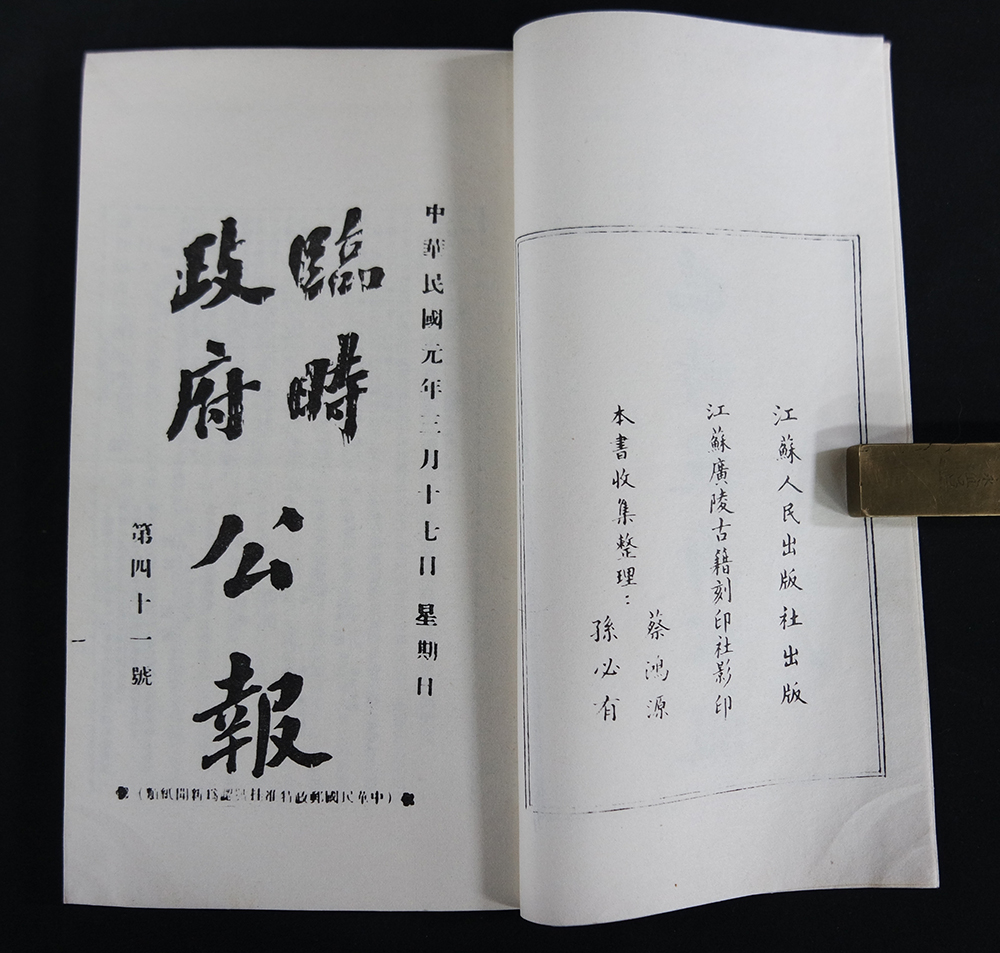 江蘇人民出版社出版
江蘇廣陵古籍刻印社影印
本書收集整理：
蔡鴻源
孫必有
中華民國元年三月十七日 星期日
臨時
政府
公報
第四十一號
（中華民國郵政特准挂號認爲新聞紙類）